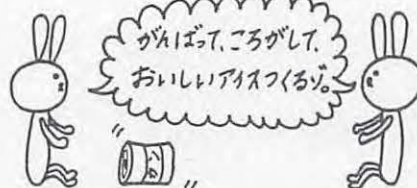 がんばって、ころがして、
おいしいアイスつくるゾ。